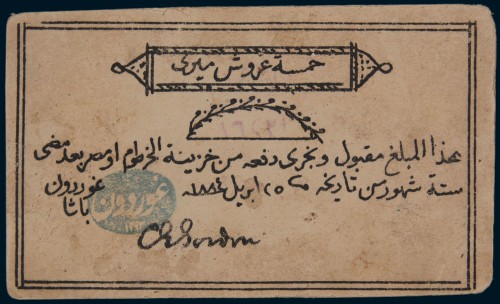 خمسة غروش ميرى
هذا المبلغ مقبول ويجرى دفعه من خزينة الخرطوم او مصر بعد مضى
ستة شهور من تاريخه ٢٥ ابريل ١٨٨٤ غوردون
باشا
غوردون
C G Gordon